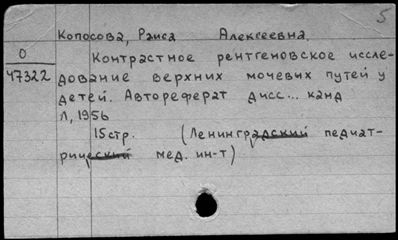 5
Копосова, Раиса Алексеевна.
О
47322
Контрастное рентгеновское иссле-
дование верхних мочевых путей у
детей. Автореферат дисс... канд
Л, 1956
15стр. (Ленинградский педиат-
рический мед. ин-т)